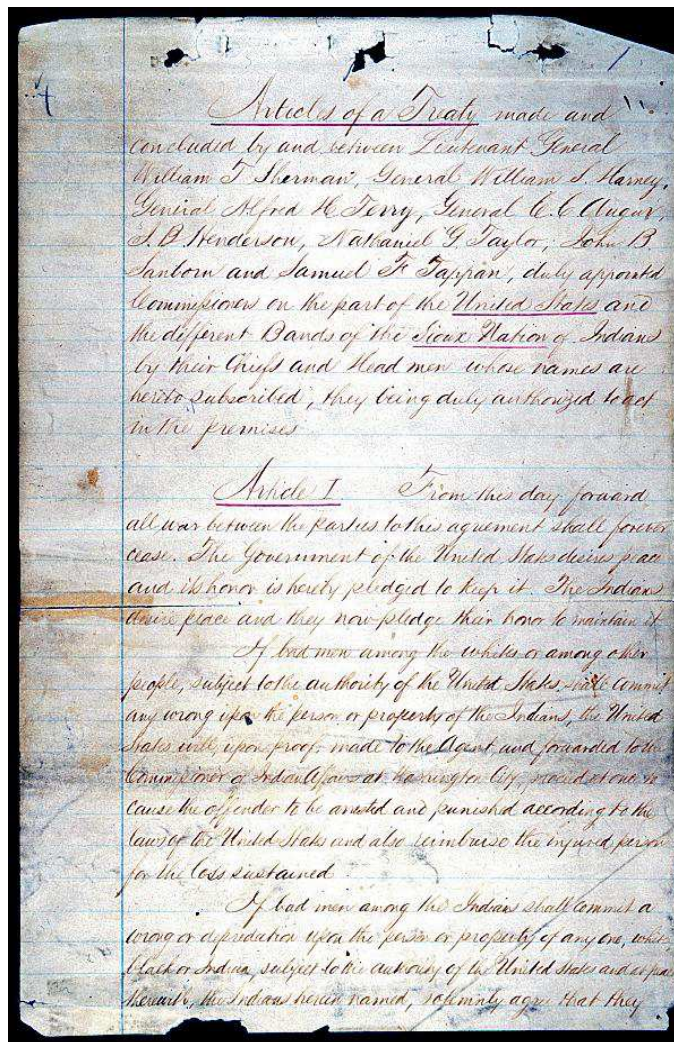 4
Articles of a Treaty made and
concluded by and between Lieutenant General
William T Sherman, General William S. Harney,
General Alfred H Terry, General C. C Augur,
J. B Henderson, Nathaniel G Taylor, John B.
Sanborn and Samuel F Tappan, duly appointed
Commissioners on the part of the United States and
the different Bands of the Sioux Nation of Indians
by their Chiefs and Head men whose names are
hereto subscribed, they being duly authorized to act
in the premises
Article I. From this day forward
all war between the parties to this agreement shall forever
cease. The Government of the United States desires peace
and its honor is hereby pledged to keep it. The Indians
desire peace and they now pledge their honor to maintain it
If bad men among the whites or among other
people, subject to the authority of the United States, shall commit
any wrong upon the person or property of the Indians, the United
States will, upon proof made to the Agent and forwarded to the
Commissioner of Indian Affairs at Washington City, proceed at once to
cause the offender to be arrested and punished according to the
laws of the United States and also reimburse the injured person
for the loss sustained
If bad men among the Indians shall commit a
wrong or depredation upon the person or property of any one, white,
black or Indian, subject to the authority of the United States and at peace
therewith, the Indians herein named, solemnly agree that they